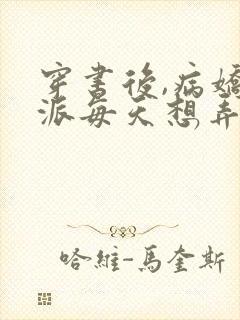 穿書後,病嬌
派每天想弄
哈維-馬奎斯